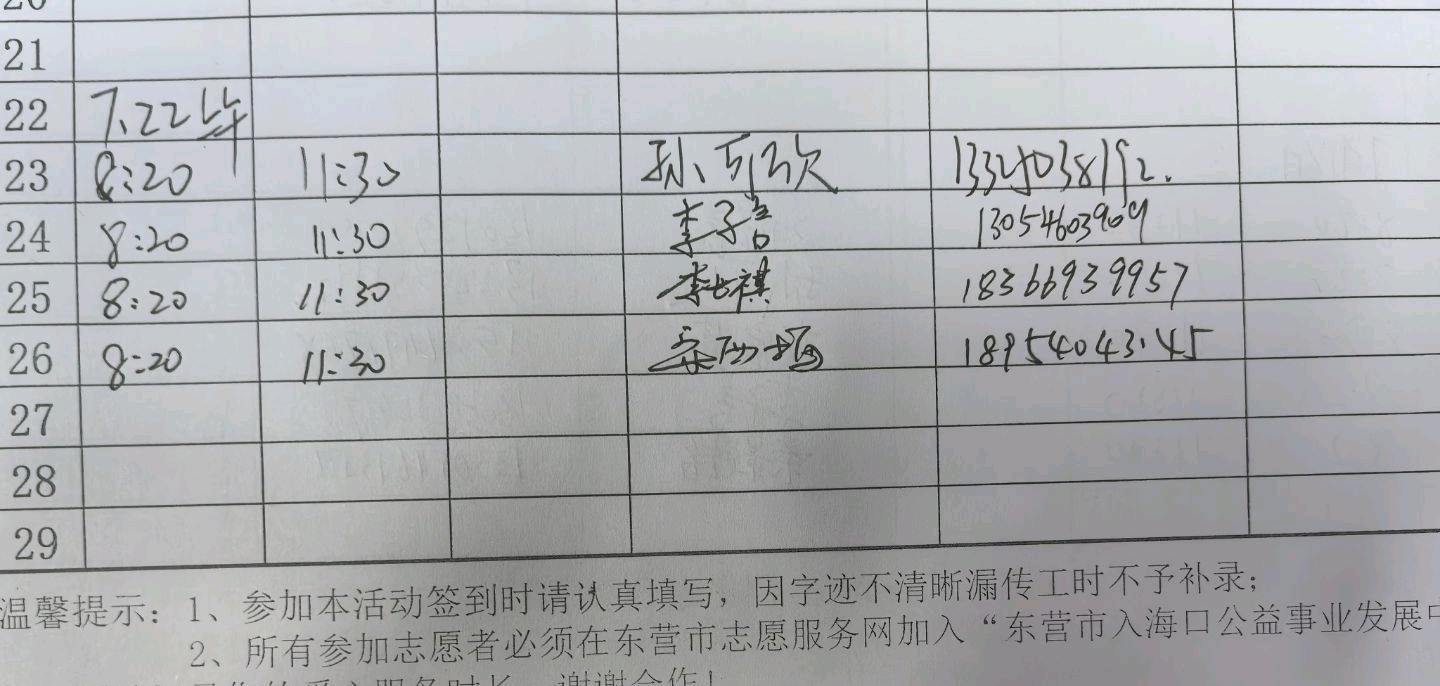 21
22 7.22
23 8:20 11:30 孙
24 8:20 11:30 李子 13054603909
25 8:20 11:30 李 祺 18366939957
26 8:20 11:30 18954043145
27
28
29
温馨提示：1、参加本活动签到时请认真填写，因字迹不清晰漏传工时不予补录；
2、所有参加志愿者必须在东营市志愿服务网加入“东营市入海口公益事业发展中
谢谢合作！